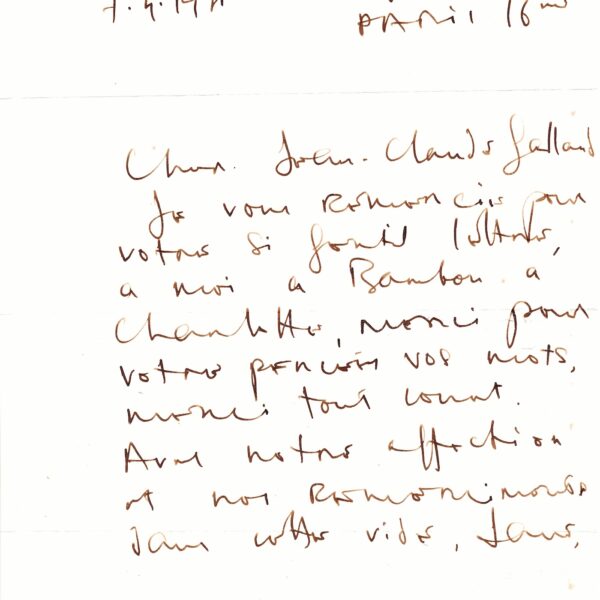 PARIS 16
Cher Jean-Claude Galland
Je vous REMERCIE pour
votre si gentil lettre,
a moi a Bambou a
Charlotte, merci pour
votre PENSEES vos mots,
merci tout court.
Avec notre affection
et nos REMERCIMENTS
dans cette vide, sans,